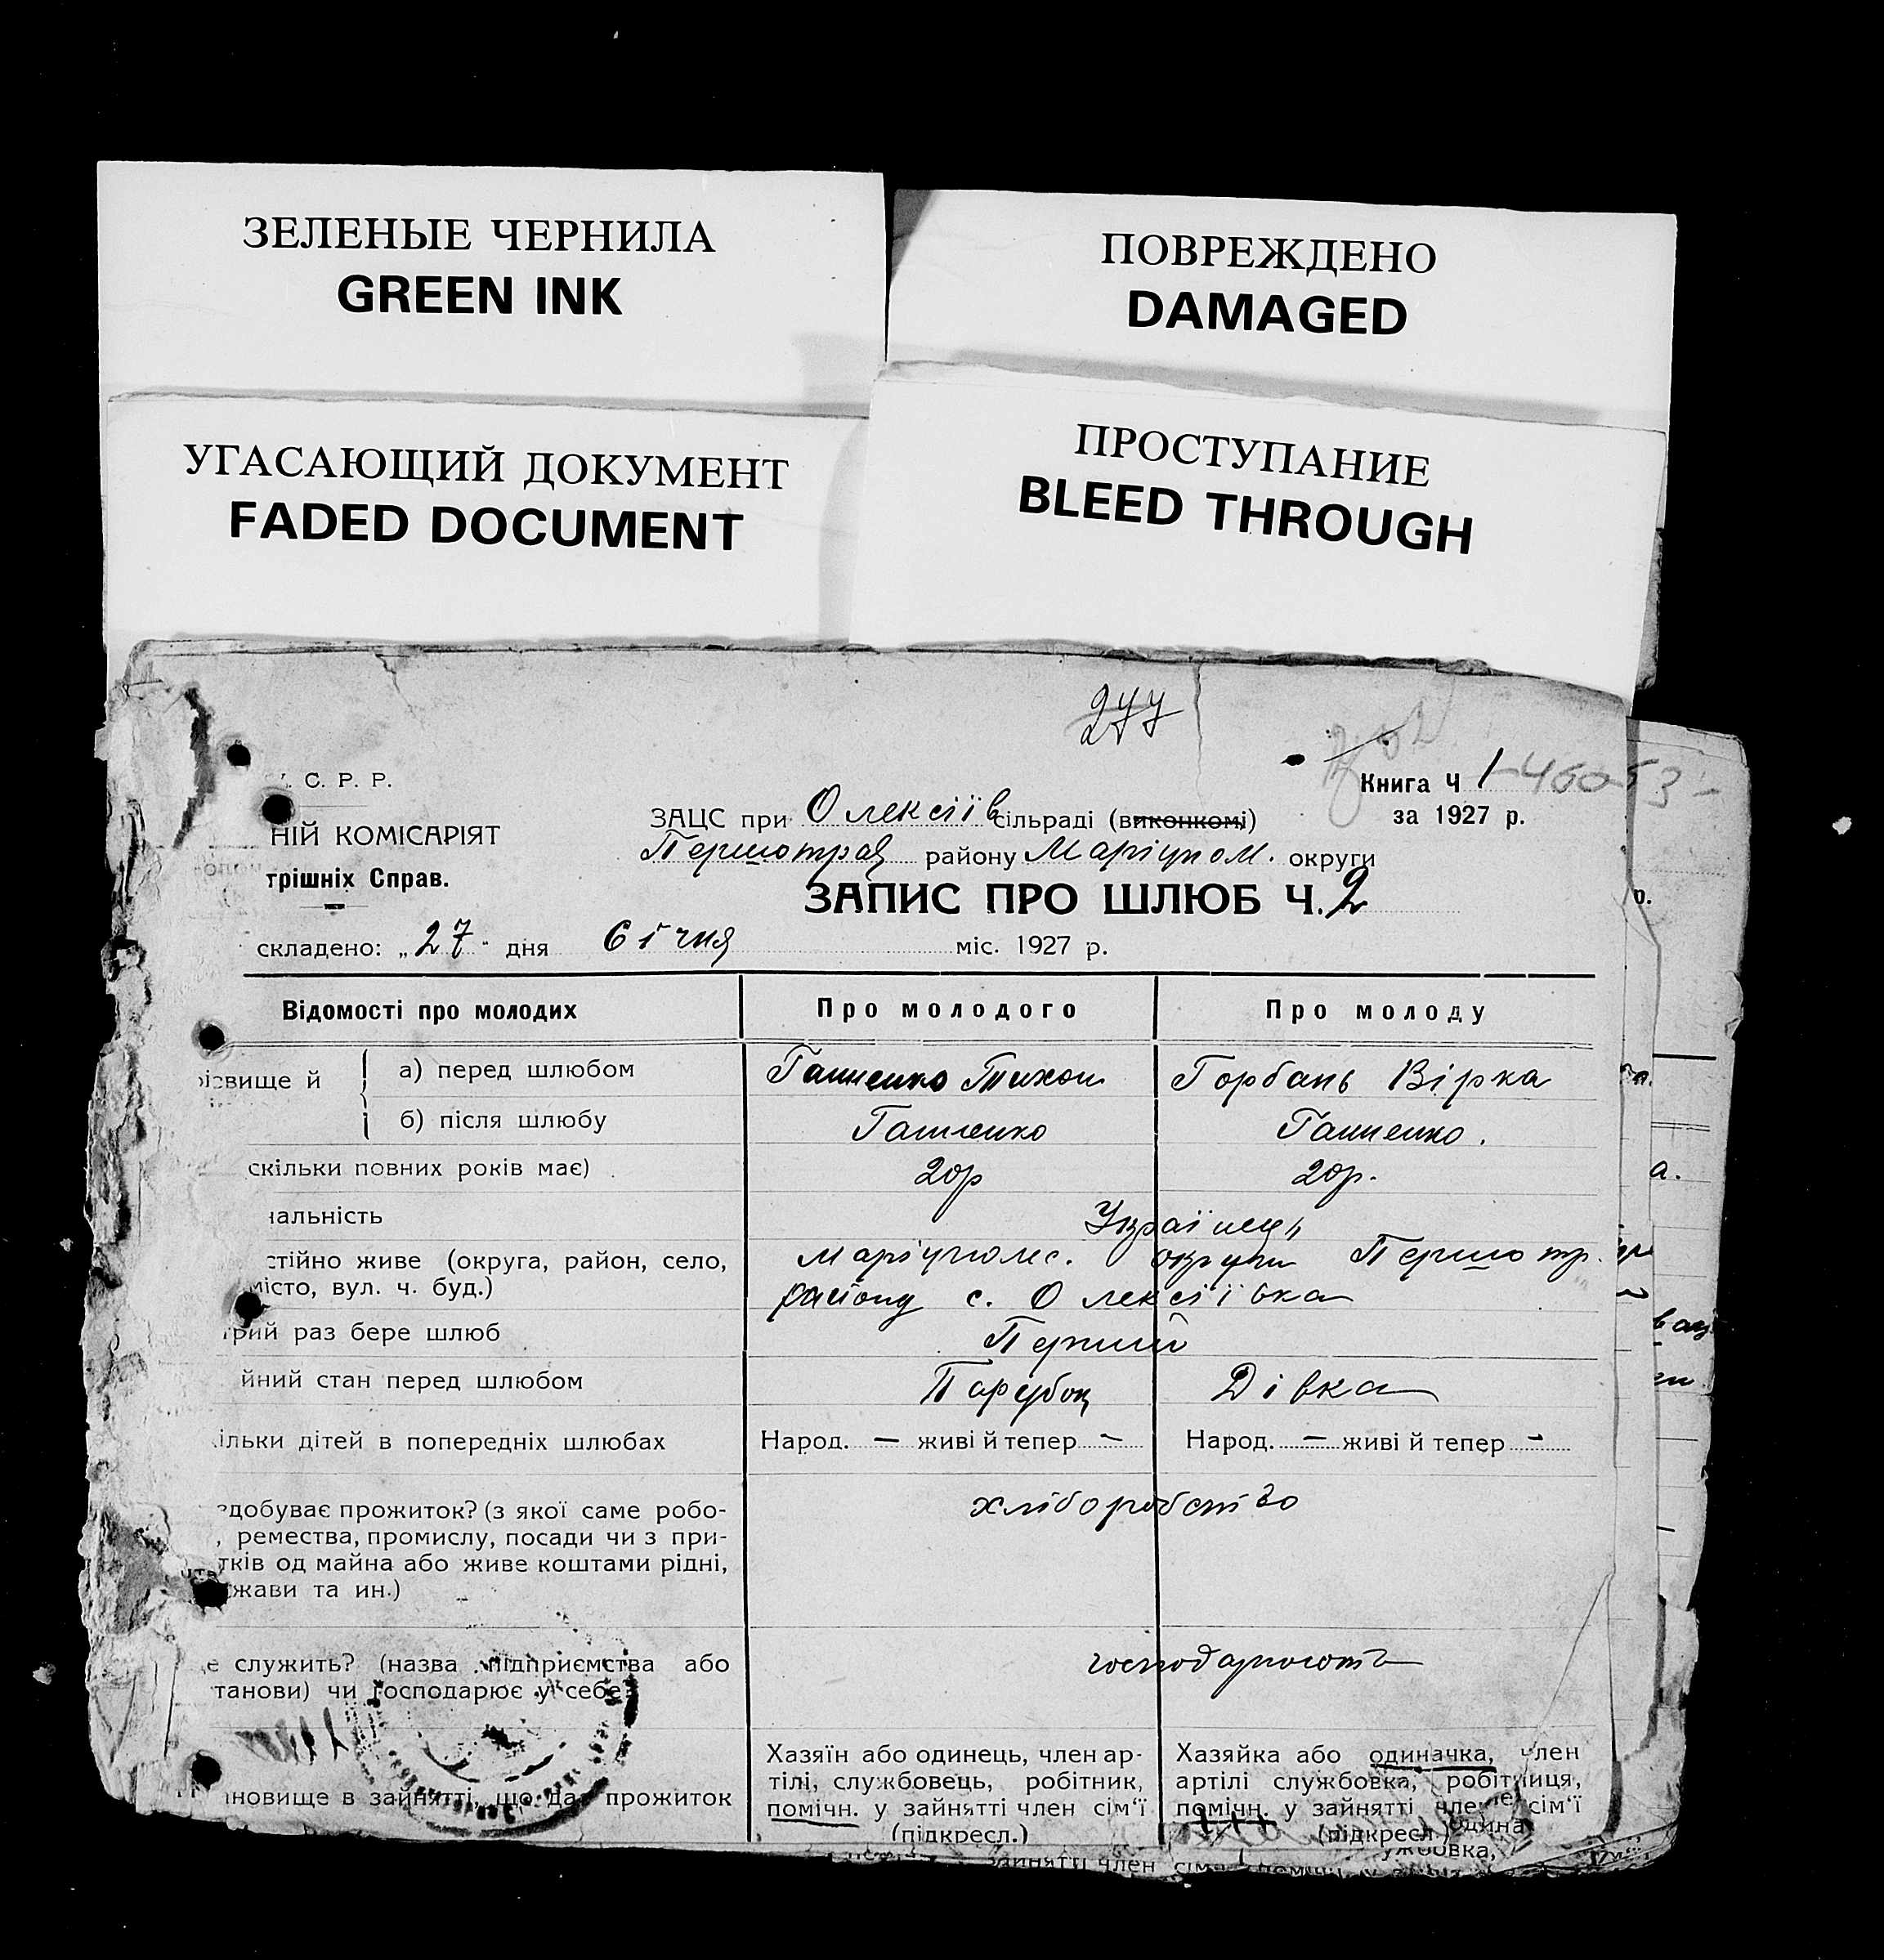 ЗЕЛЕНЫЕ ЧЕРНИЛА
GREEN INK
ПОВРЕЖДЕНО
DAMAGED
УГАСАЮЩИЙ ДОКУМЕНТ
FADED DOCUMENT
ПРОСТУПАНИЕ
BLEED THROUGH
277
С. Р. Р.
Книга Ч 1
за 1927 р.
НІЙ КОМІСАРІЯТ
трішніх Справ.
ЗАЦС при Олексіїв сільраді (виконкомі)
Першотрав району Маріупол. округи
ЗАПИС ПРО ШЛЮБ Ч. 2
складено: „27" дня січня міс. 1927 р.
Відомості про молодих Про молодого Про молоду
різвище й а) перед шлюбом Тихон Горбань Вірка
б) після шлюбу
скільки повних років має) 20р 20р.
нальність Українці
стійно живе (округа, район, село, Маріуполс. округи Першотр.
місто, вул. ч. буд.) району с. Олексіївка
трий раз бере шлюб Перший
йний стан перед шлюбом Парубок Дівка
ільки дітей в попередніх шлюбах Народ. — живі й тепер — Народ. — живі й тепер -
здобуває прожиток? (з якої саме робо- хліборобство
, ремества, промислу, посади чи з при-
тків од майна або живе коштами рідні,
жави та ин.)
е служить? (назва підприємства або
танови) чи господарює у себе
новище в зайнятті, що дає прожиток
Хазяїн або одинець, член ар-
тілі, службовець, робітник,
помічн. у зайнятті член сім'ї
(підкресл.)
Хазяйка або одиначка, член
артілі службовка, робітниця,
помічн. у зайнятті член сім'ї
(підкресл.)